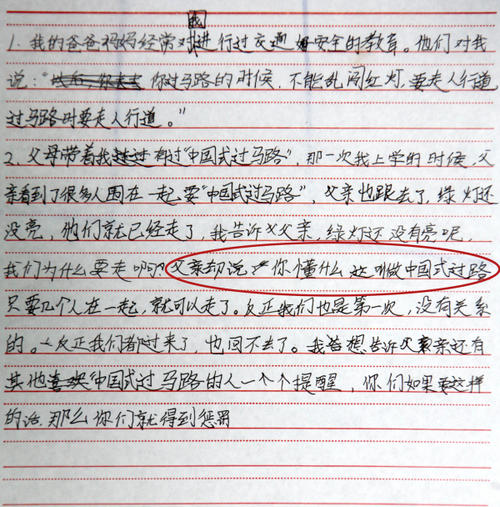 我
1. 我的爸爸妈妈经常对进行过交通安全的教育。他们对我
说:“以后,你去 你过马路的时候,不能乱闯红灯,要走人行道
过马路时要走人行道。”
2、父母带着我过有过“中国式过马路”,那一次我上学的时候,父
亲看到了很多人围在一起要“中国式过马路”,父亲也跟去了,绿灯还
没亮,他们就已经走了,我告诉父父亲,绿灯还没有亮呢,
我们为什么要走啊?父亲却说:“你懂什么 这叫做中国式过路
只要几个人在一起,就可以走了。反正我们也是第一次,没有关系
的。反正我们都过来了,也回不去了。我想告诉父亲还有
其他“中国式过马路的人一个个提醒,你们如果要这样
的话,那么你们就得到惩罚